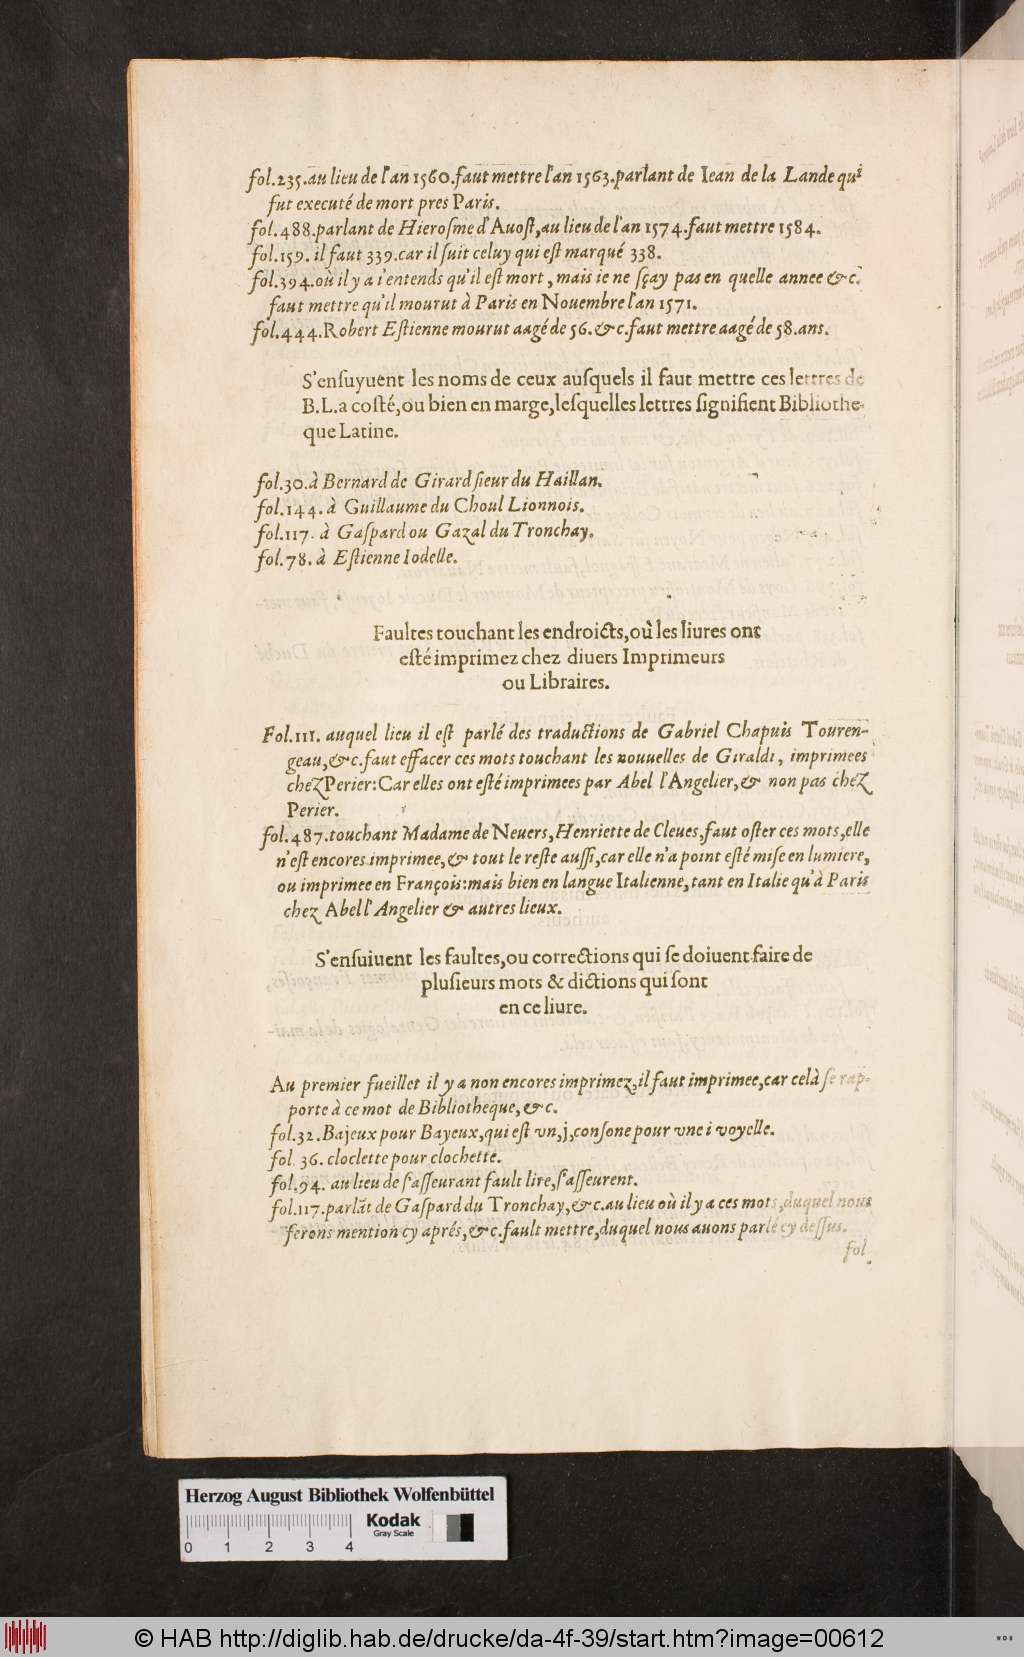 fol.235.au lieu de l'an 1560.faut mettre l'an 1563.parlant de Iean de la Lande qui
fut executé de mort pres Paris.
fol.488.parlant de Hierosme d'Auost,au lieu de l'an 1574.faut mettre 1584.
fol.159. il faut 339.car il suit celuy qui est marqué 338.
fol.394.où il y a i'entends qu'il est mort, mais ie ne sçay pas en quelle annee &c.
faut mettre qu'il mourut à Paris en Nouembre l'an 1571.
fol.444.Robert Estienne mourut aagé de 56.&c.faut mettre aagé de 58.ans.
S'ensuyuent les noms de ceux ausquels il faut mettre ces lettres de
B.L.a costé,ou bien en marge,lesquelles lettres signifient Bibliothe-
que Latine.
fol.30.à Bernard de Girard sieur du Haillan.
fol.144. à Guillaume du Choul Lionnois.
fol.117. à Gaspard ou Gazal du Tronchay.
fol.78. à Estienne Iodelle.
Faultes touchant les endroicts,où les liures ont
esté imprimez chez diuers Imprimeurs
ou Libraires.
Fol.111. auquel lieu il est parlé des traductions de Gabriel Chapuis Touren-
geau,&c.faut effacer ces mots touchant les nouuelles de Giraldi, imprimees
chez Perier:Car elles ont esté imprimees par Abel l'Angelier,& non pas chez
Perier.
fol.487.touchant Madame de Neuers,Henriette de Cleues,faut oster ces mots,elle
n'est encores imprimee,& tout le reste aussi,car elle n'a point esté mise en lumiere,
ou imprimee en François:mais bien en langue Italienne,tant en Italie qu'à Paris
chez Abel l'Angelier & autres lieux.
S'ensuiuent les faultes,ou corrections qui se doiuent faire de
plusieurs mots & dictions qui sont
en ce liure.
Au premier fueillet il y a non encores imprimez,il faut imprimee,car celà se rap-
porte à ce mot de Bibliotheque,&c.
fol.32.Bajeux pour Bayeux,qui est vn,j,consone pour vne i voyelle.
fol. 36. cloclette pour clochette.
fol.94. au lieu de s'asseurant fault lire,s'asseurent.
fol.117.parlāt de Gaspard du Tronchay,&c.au lieu où il y a ces mots,duquel nous
ferons mention cy aprés,&c.fault mettre,duquel nous auons parlé cy dessus.
fol.
Herzog August Bibliothek Wolfenbüttel
Kodak
Gray Scale
0 1 2 3 4
© HAB http://diglib.hab.de/drucke/da-4f-39/start.htm?image=00612